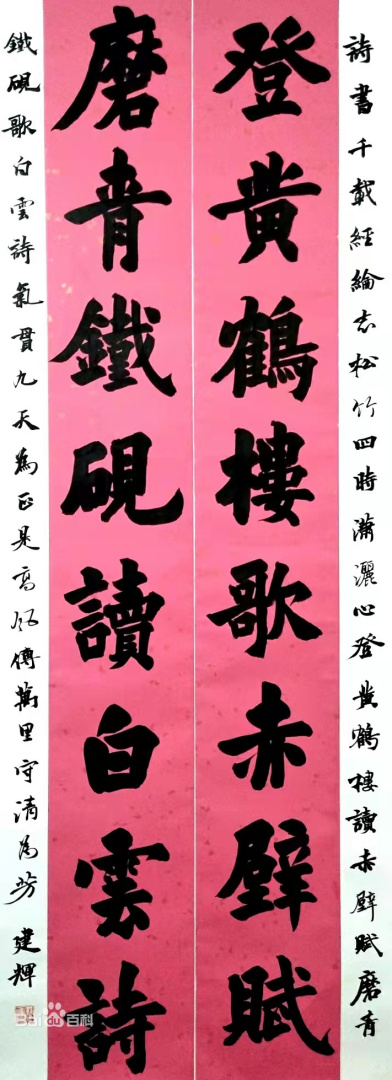 詩書千載經綸志松竹四時瀟灑心登黃鶴樓讀赤壁賦磨青
登黃鶴樓歌赤壁賦
磨青鐵硯讀白雲詩
鐵硯歌白雲詩氣貫九天為正是高風傳萬里守清為芳 建輝
Baidu百科